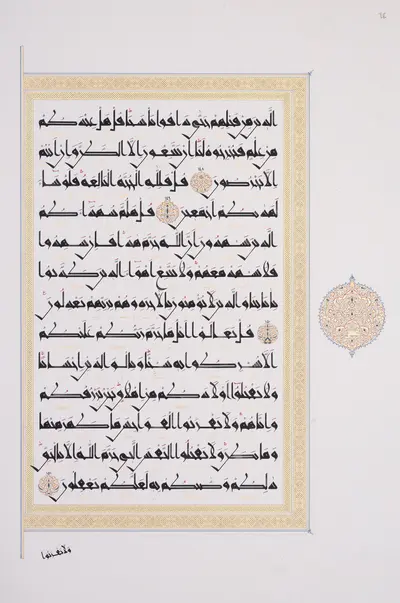 الذين من قبلهم حتى ذاقوا بأسنا قل هل عندكم
من علم فتخرجوه لنا إن تتبعون إلا الظن وإن أنتم
إلا تخرصون قل فلله الحجة البالغة فلو شاء
لهدىكم أجمعين قل هلم شهداءكم
الذين يشهدون أن الله حرم هذا فإن شهدوا
فلا تشهد معهم ولا تتبع أهواء الذين كذبوا
بآياتنا والذين لا يؤمنون بالآخرة وهم بربهم يعدلون
قل تعالوا أتل ما حرم ربكم عليكم
ألا تشركوا به شيئا وبالوالدين إحسانا
ولا تقتلوا أولادكم من إملاق نحن نرزقكم
وإياهم ولا تقربوا الفواحش ما ظهر منها
وما بطن ولا تقتلوا النفس التي حرم الله إلا بالحق
ذلكم وصىكم به لعلكم تعقلون
ولا تقربوا